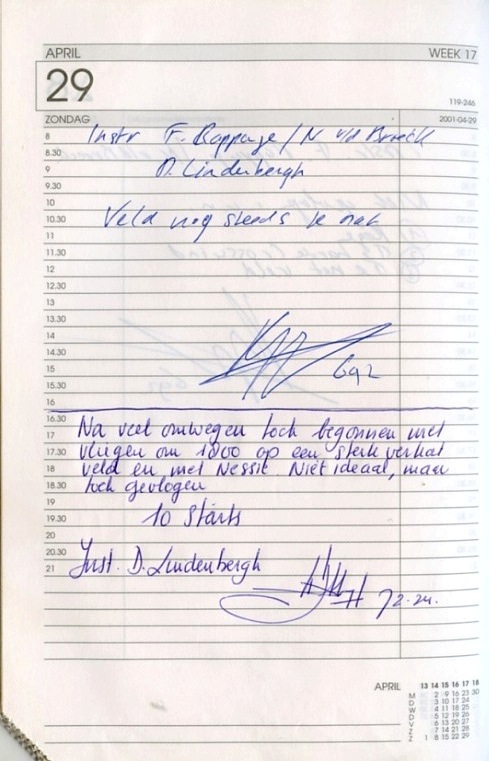 APRIL WEEK 17
29
119-246
ZONDAG 2001-04-29
8 Instr F. Rappage / N v/d Broeck
8.30
9 D. Lindenbergh
9.30
10 Veld nog steeds te nat
10.30
11
11.30
12
12.30
13
13.30
14
14.30
15 692
15.30
16
16.30 Na veel omwegen toch begonnen met
17 vliegen om 1800 op een sterk verkat
17.30 veld en met Nessie Niet ideaal, maar
18 toch gevlogen
18.30
19 10 Starts
19.30
20
20.30 Inst. D. Lindenbergh
21
72.24.
APRIL 13 14 15 16 17 18
M 2 9 16 23 30
D 3 10 17 24
W 4 11 18 25
D 5 12 19 26
V 6 13 20 27
Z 7 14 21 28
Z 1 8 15 22 29